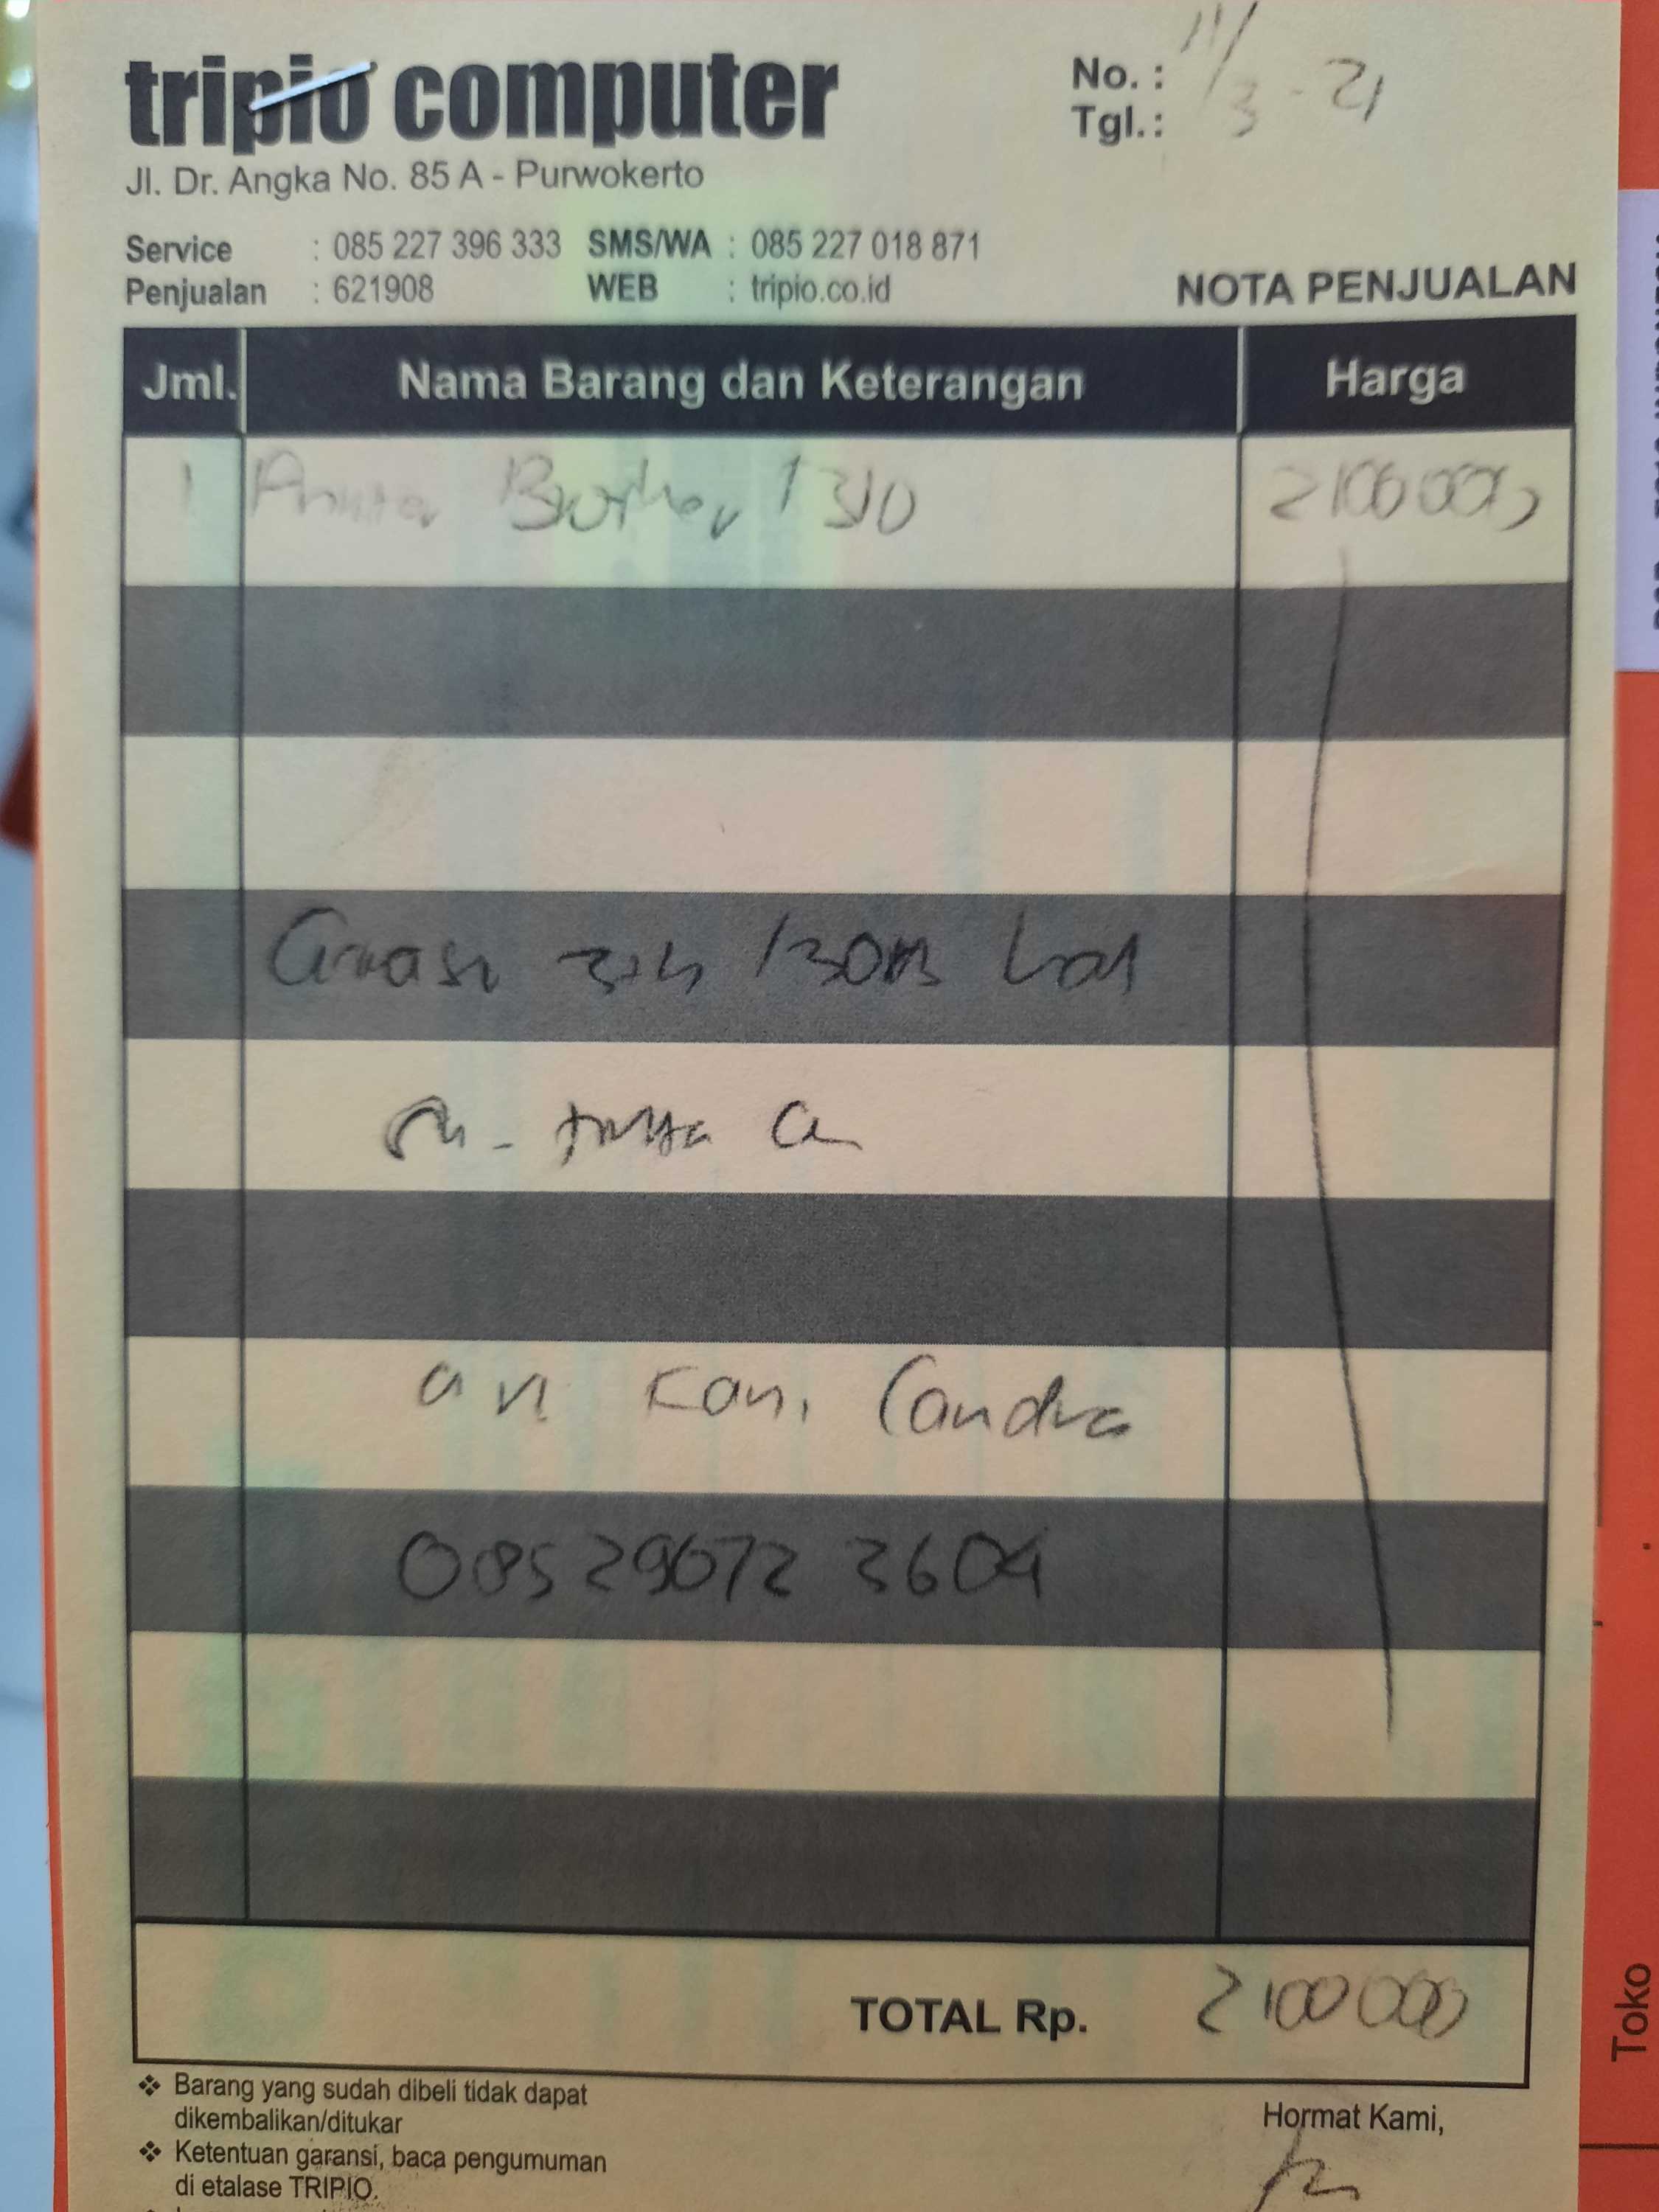 tripio computer
Jl. Dr. Angka No. 85 A - Purwokerto
No. :
Tgl. : 11/3-21
Service : 085 227 396 333 SMS/WA : 085 227 018 871
Penjualan : 621908 WEB : tripio.co.id
NOTA PENJUALAN
Jml. Nama Barang dan Keterangan Harga
1 Printer Brother T310 2100000
an Candra
2100000
TOTAL Rp. 2100000
Barang yang sudah dibeli tidak dapat
dikembalikan/ditukar
Ketentuan garansi, baca pengumuman
di etalase TRIPIO.
Hormat Kami,
Toko